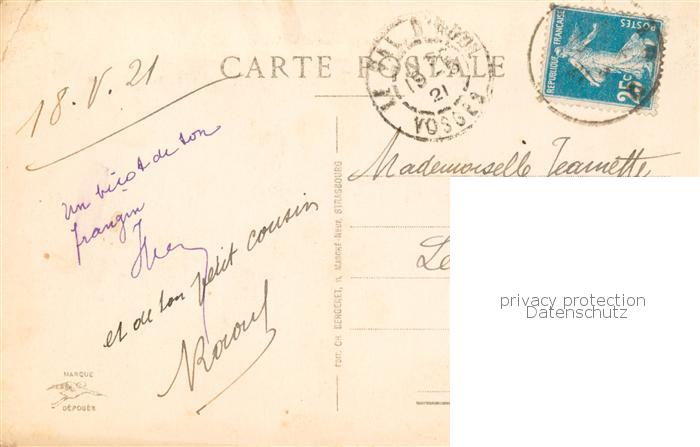 CARTE POSTALE
18.V.21
LE VAL D'AJOL
18
21
VOSGES
REPUBLIQUE FRANÇAISE
POSTES
25c
Mademoiselle Jeannette
Un bécot de ton
frangin
et de ton petit cousin
Raoul
Le
privacy protection
Datenschutz
EDIT. CH. BERGERET, MARCHÉ-NEUF, STRASBOURG
MARQUE
DÉPOSÉE